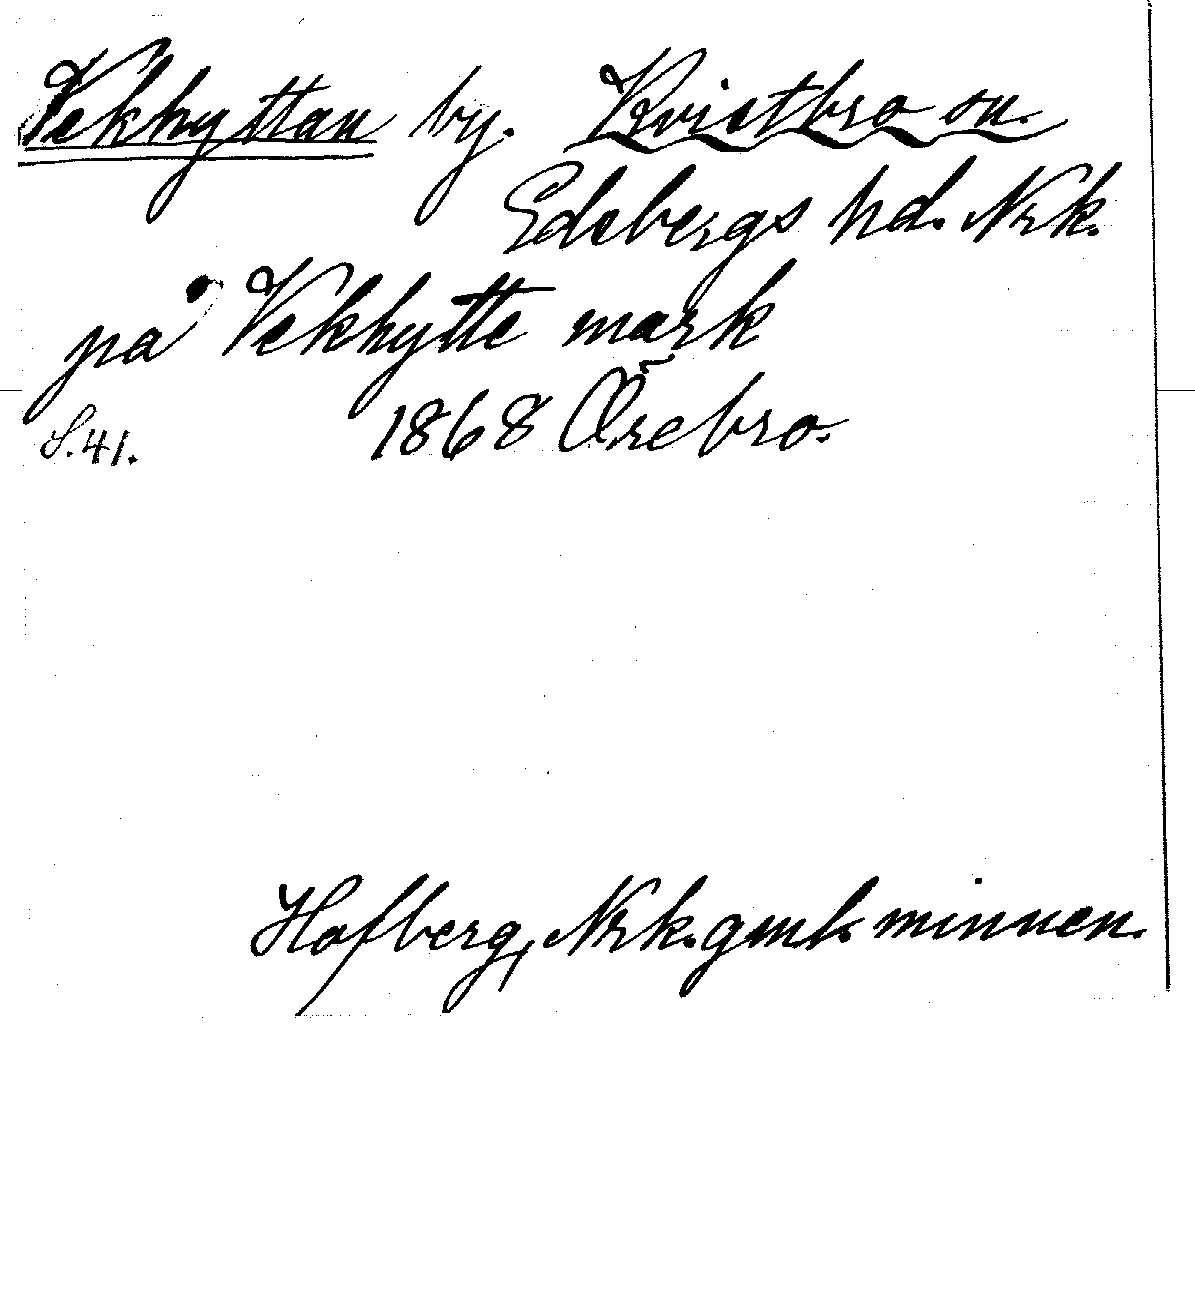 Vekhyttan by. Kvistbro sn.
Edsbergs hd. Nrk.
på Vekhytte mark
S. 41. 1868 Örebro.
Hofberg, Nrk. gml. minnen.